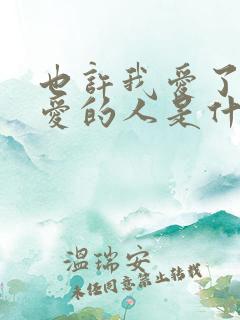 也許我愛了
愛的人是什
溫瑞安
未經同意禁止轉載